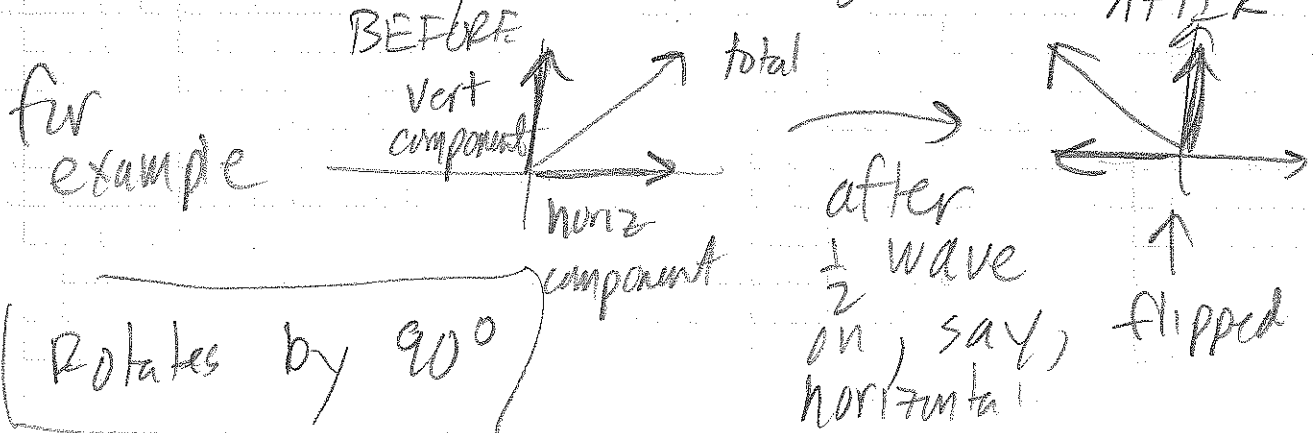 for
example
BEFORE
vert
component
total
horiz
component
after
1/2 wave
on, say,
horizontal
AFTER
flipped
Rotates by 90°